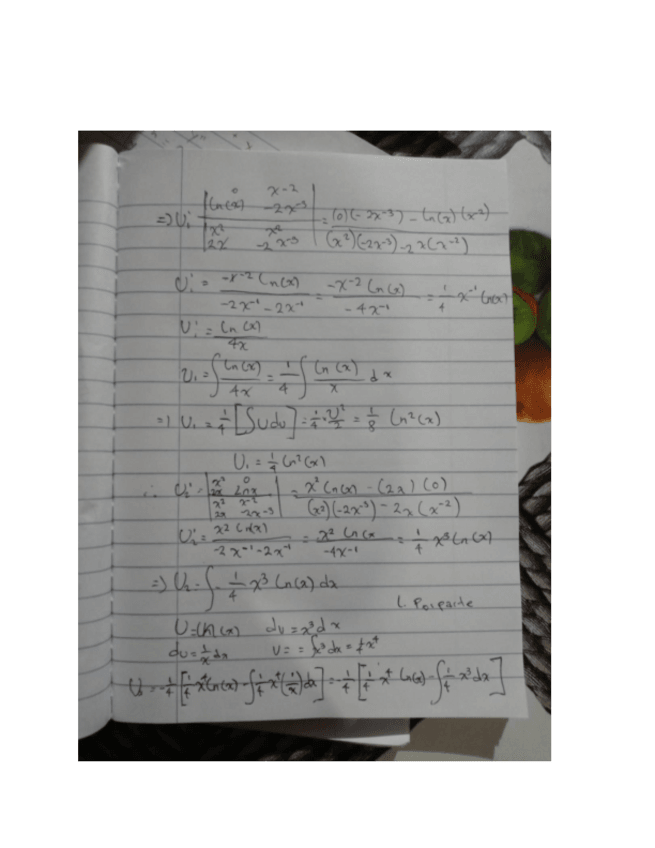 0 x-2
=> U₁' |ln(x) -2x⁻³| = (0)(-2x⁻³) - ln(x)(x⁻²)
|x² x²| (x²)(-2x⁻³) - 2x(x⁻²)
2x -2x⁻³
U₁' = -x⁻² ln(x) / -2x⁻¹ - 2x⁻¹ = -x-2 ln(x) / -4x⁻¹ = 1/4 x⁻¹ ln(x)
U₁' = ln(x) / 4x
U₁ = ∫ ln(x) / 4x = 1/4 ∫ ln(x) / x dx
=) U₁ = 1/4 [∫udu] = 1/4 · U²/2 = 1/8 ln²(x)
U₁ = 1/4 ln²(x)
∴ U₂' = |x² 0| = x² ln(x) - (2x)(0)
2x lnx
|x² x⁻²| (x²)(-2x⁻³) - 2x(x⁻²)
2x -2x⁻³
U₂' = x² ln(x) / -2x⁻¹ - 2x⁻¹ = x² ln(x / -4x⁻¹ = 1/4 x³ ln(x)
=) U₂ = ∫ - 1/4 x³ ln(x) dx
U = ln(x) dv = x³dx
du = 1/x dx v = = ∫x³dx = 1/4 x⁴
U₂ = -1/4 [1/4 x⁴ ln(x) - ∫1/4 x⁴ (1/x) dx] = -1/4 [1/4 x⁴ ln(x) - ∫1/4 x³dx]